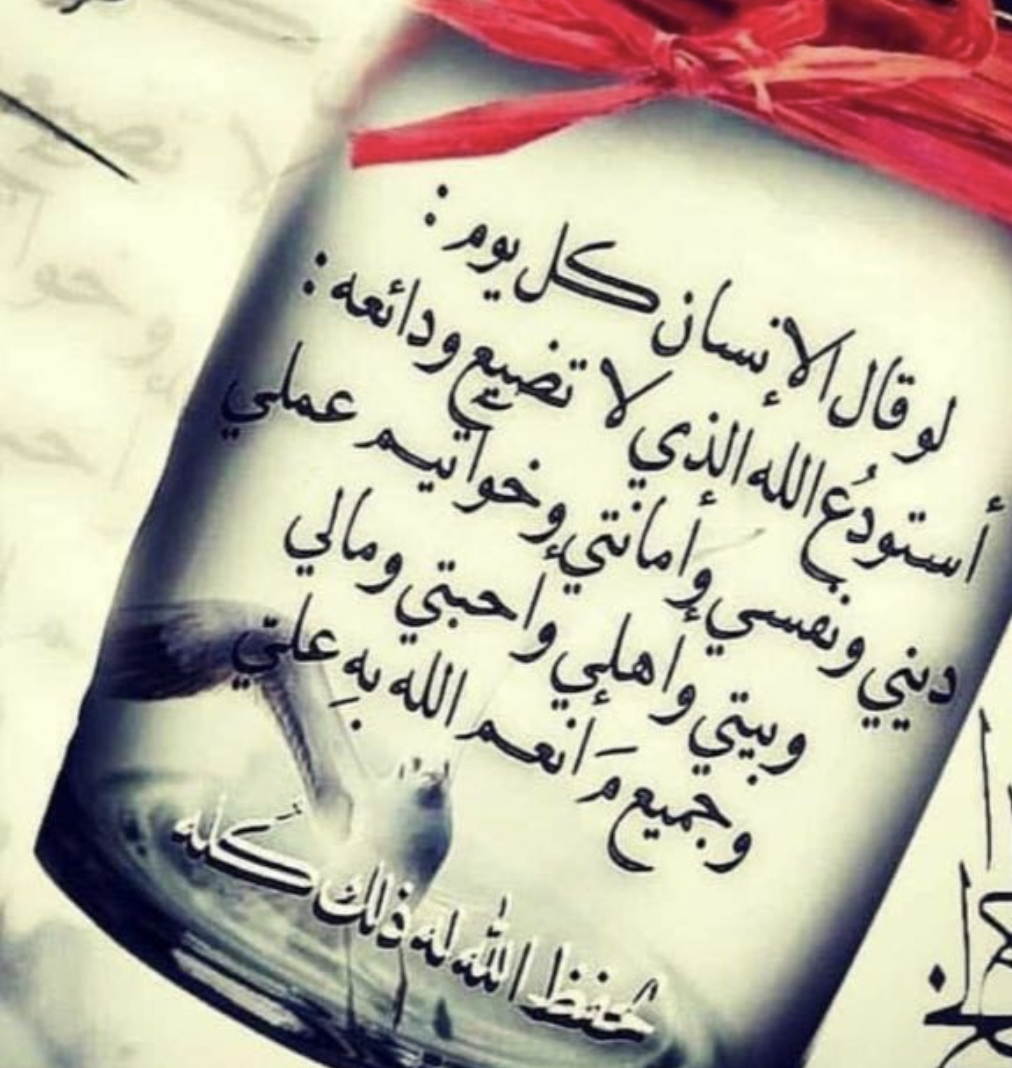 لو قال الإنسان كل يوم :
أستودُع الله الذي لا تضيع ودائعه :
ديني ونفسي وأمانتي وخواتيم عملي
وبيتي وأهلي واحبتي ومالي
وجميع مَ انعم الله بهِ عليّ
لحفظ الله له ذلك كُله